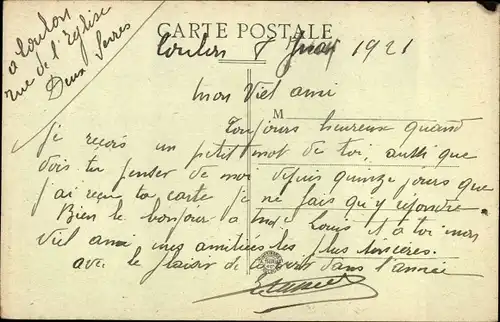 à Coulon
rue de l'Eglise
Deux Sevres
CARTE POSTALE
Coulon 8 1921
Mon Viel ami
M
Toujours heureux quand
je reçois un petit mot de toi, aussi que
dois tu penser de moi depuis quinze jours que
j'ai reçu ta carte je ne fais qu'y repondre.
Bien le bonjour a Md Louis et à toi mon
Viel ami mes amitiées les plus sincères.
avec le plaisir de dans l'année